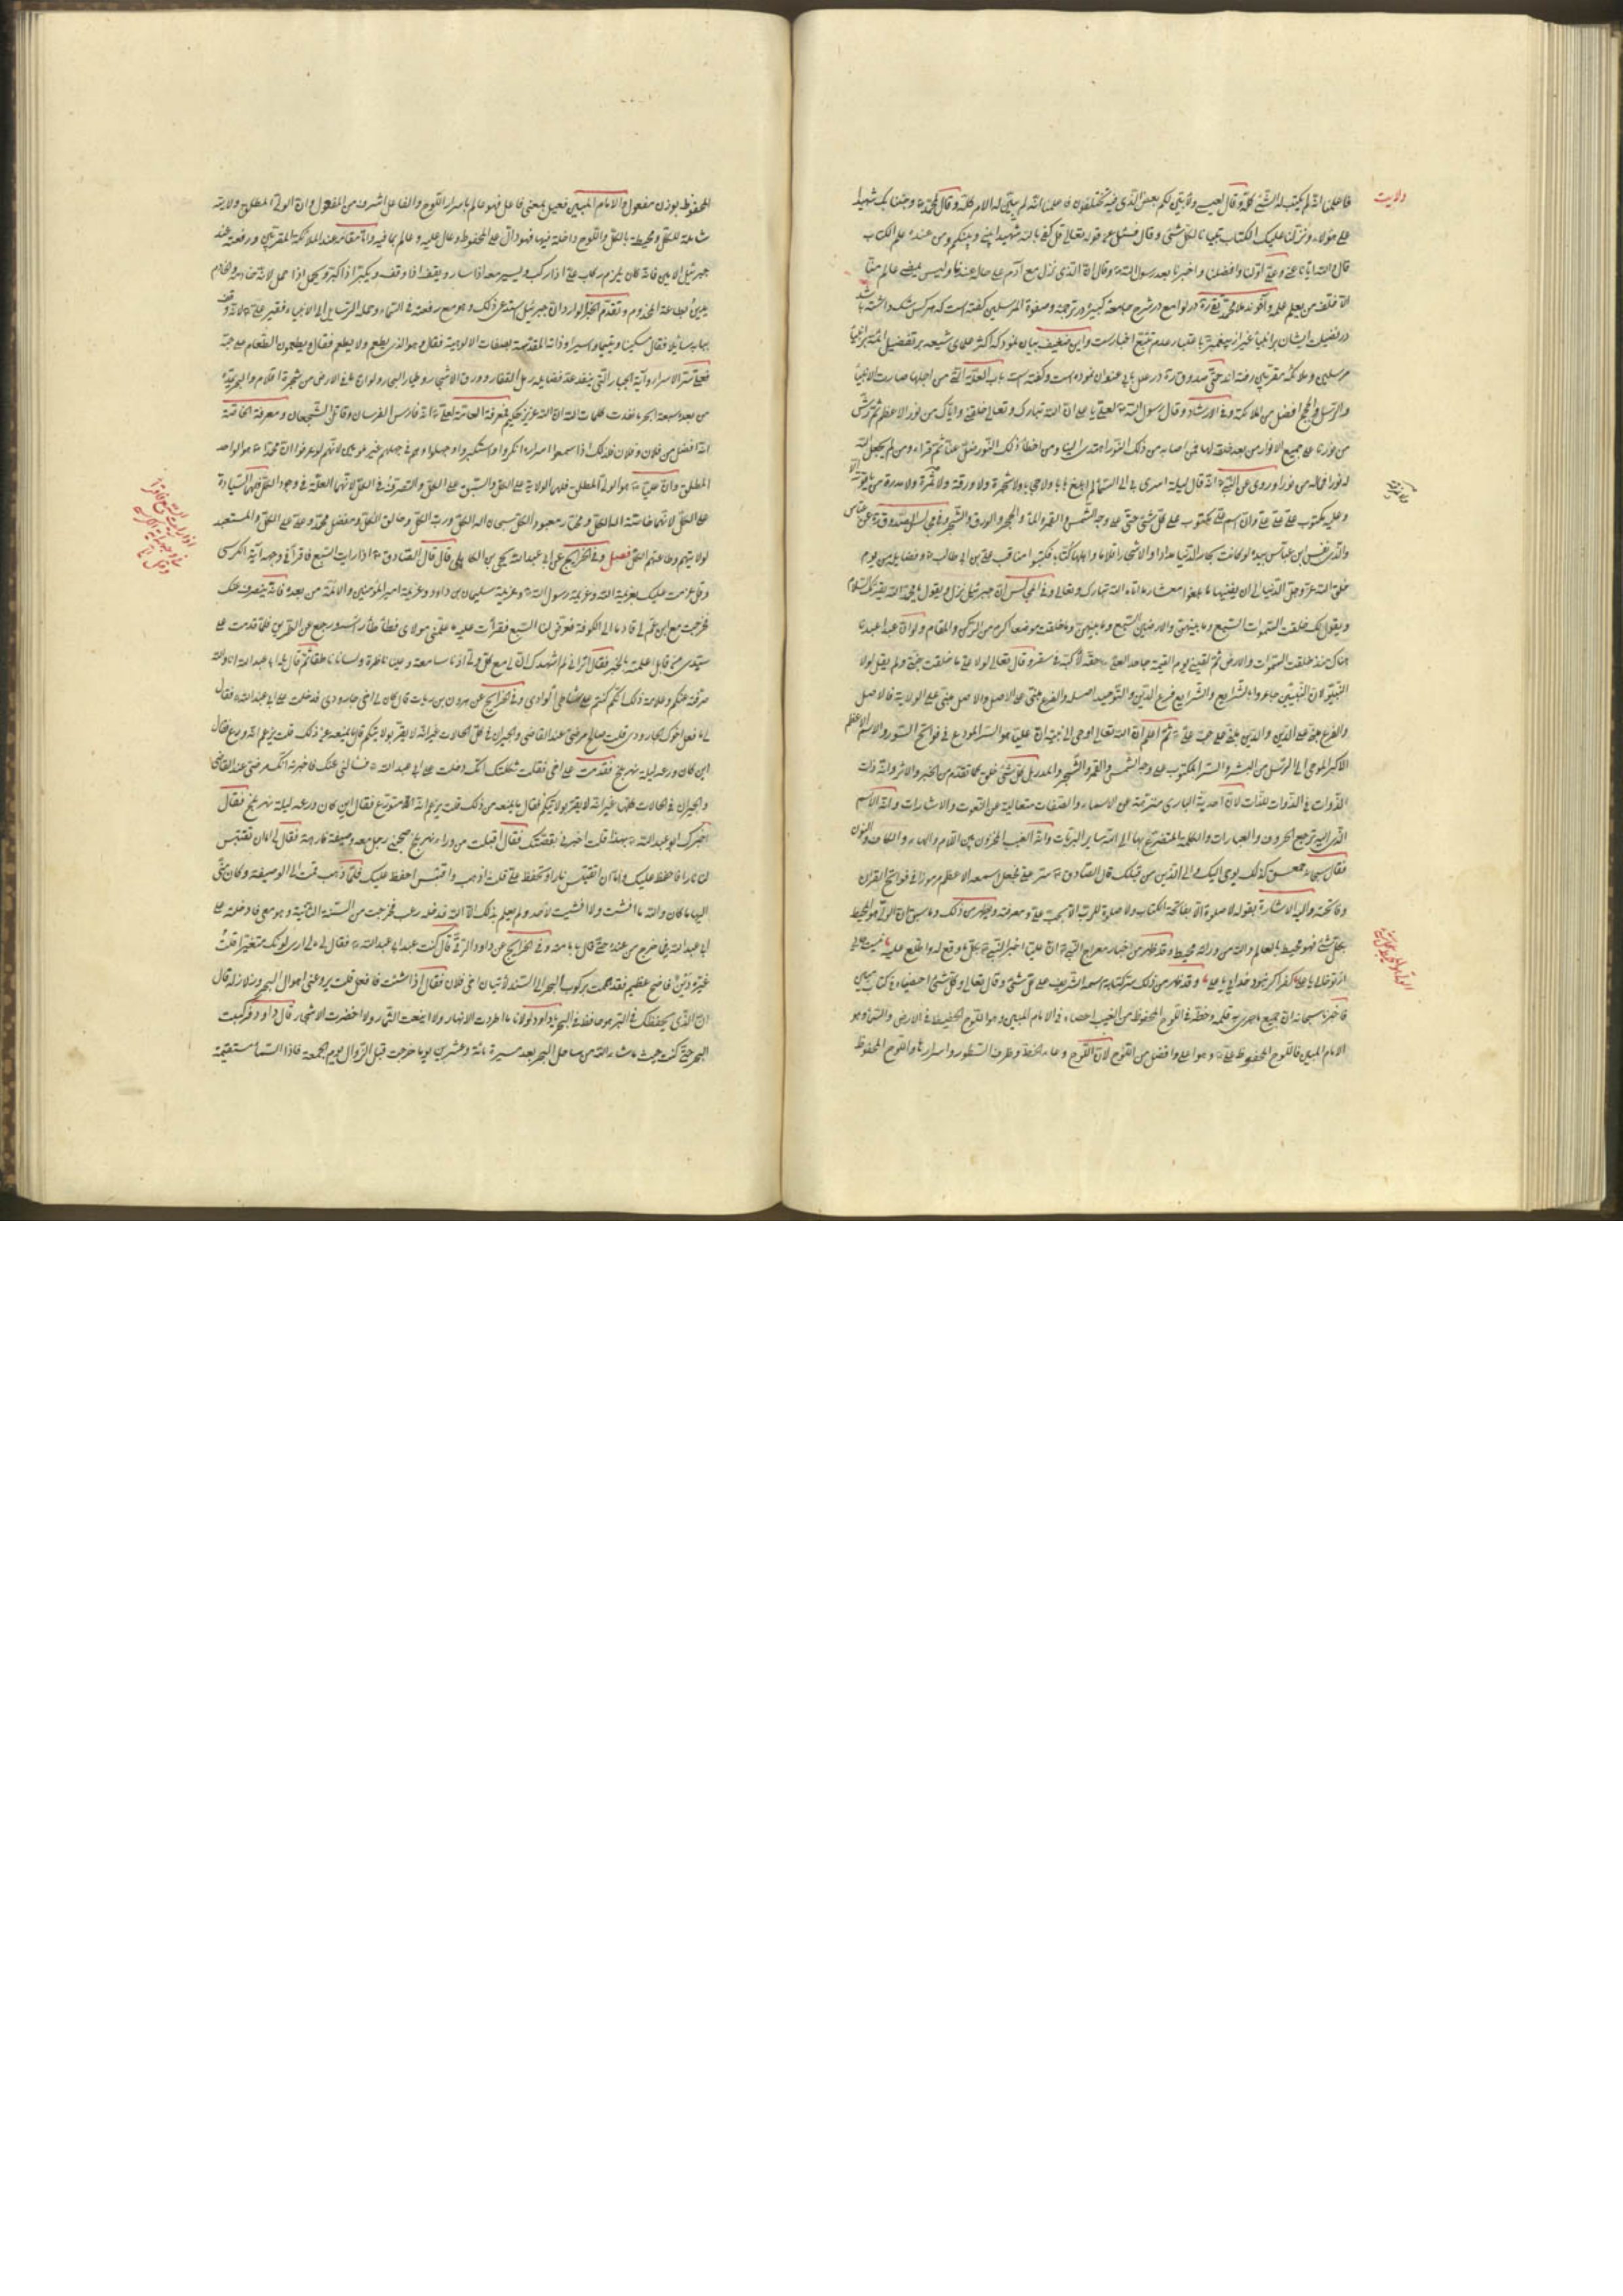 فاعلمنا انه لم يكتب له الشئ كله وقال لعيسى ولابين لكم بعض الذى فيه تختلفون فاعلمنا انه لم يبين له الامر كله وقال لمحمد وجئنا بك شهيدا
على هؤلاء ونزلنا عليك الكتاب تبيانا لكل شئ وقال فسئل عن قوله تعالى قل كفى بالله شهيدا بينى وبينكم ومن عنده علم الكتاب
قال والله ايانا عنى وعلى اولنا وافضلنا واخيرنا بعد رسول الله وقال ان الذى نزل مع آدم على حاله عندنا وليس يمضى عالم منا
الا خلف من يعلم علمه وآخوند ملا محمد تقى در لوامع در شرح جامعه كبيره در ترجمه وصفوة المرسلين كفته است كه هر كس شك داشته باشد
در فضيلت ايشان بر انبيا غير از پيغمبر باعتبار عدم تتبع اخبار است واين ضعيف بيان نمود كه اكثر علماى شيعه بر تفضيل ائمه بر انبيا
مرسلين وملائكه مقربين رفته اند حتى صدوق در علل بابى عنوان نموده است وكفته است باب العلة التى من اجلها صارت الانبيا
والرسل والحجج افضل من الملائكة وفى الارشاد وقال رسول الله لعلى يا على ان الله تبارك وتعالى خلقنى واياك من نوره الاعظم ثم رش
من نورنا على جميع الانوار من بعد خلقه لها فمن اصابه من ذلك النور اهتدى الينا ومن اخطأ ذلك النور ضل عنا ثم قراء ومن لم يجعل الله
له نورا فما له من نور وروى عن النبى انه قال ليلة اسرى بى الى السماء لم ابلغ بابا ولا حجابا ولا شجرة ولا ورقة ولا ثمرة
وعليه مكتوب على على وان اسم على مكتوب على كل شئ حتى على وجه الشمس والقمر والماء والحجر والورق والشجر وفى مجالس الصدوق عن عباس
والذى نفس ابن عباس بيده لو كانت بحار الدنيا مدادا والاشجار اقلاما واهلها كتابا فكتبوا مناقب على بن ابى طالب وفضايله من يوم
خلق الله عز وجل الدنيا الى ان يفنيها ما بلغوا معشار ما اتاه الله تبارك وتعالى وفى المجالس ان جبرئيل نزل ويقول يا محمد الله يقرئك السلام
ويقول لك خلقت السموات السبع وما بينهن والارضين السبع وما بينهن وما خلقت موضعا اكرم من الركن والمقام ولو ان عبدا عبدنا
هناك منذ خلقت السموات والارض ثم لقينى يوم القيمة جاحدا لعلى حقه لاكبه فى سقر وقال تعالى لولا على ما خلقت جنتى ولم يقل لولا
النبى لان النبيين جاءوا بالشرايع والشرايع فرع الدين والتوحيد اصله والفرع مبنى على الاصل والاصل مبنى على الولاية فالاصل
والفرع مبنى على الدين والدين مبنى على حب على ثم اعلم ان الله تعالى اوحى الى نبيه ان عليا هو السر المودع فى فواتح السور والاسم الاعظم
الاكبر الموحى الى الرسل من البشر والسر المكتوب على وجه الشمس والقمر والشجر والمدر بل كل شئ خلق كما تقدم من الخبر والاثر وانه ذات
الذوات فى الذوات للذات لان احدية البارى منزهة عن الاسماء والصفات متعالية عن النعوت والاشارات وانه الاسم
الذى اليه ترجع الحروف والعبارات والكلمة المتضرع بها الى الله ساير البريات وانه الغيب المخزون بين اللام والهاء والكاف والنون
فقال سبحانه حمعسق كذلك يوحى اليك والى الذين من قبلك قال الصادق سر على فجعل اسمه الاعظم مرموزا فى فواتح القران
وفاتحته واليه الاشارة بقوله لا صلوة الا بفاتحة الكتاب ولا صلوة للرب الا بحب على ومعرفته
بكل شئ فهو محيط بالعالم والله من ورائه محيط وقد ظهر من اخبار معراج النبى ان عليا اخبر النبى بكل ما وقع له واطلع عليه
وقد ظهر من ذلك سر كتابة اسمه الشريف على كل شئ وقال تعالى وكل شئ احصيناه فى كتاب مبين
فاخبرنا سبحانه ان جميع ما جرى به قلمه وخطه فى اللوح المحفوظ من الغيب احصاه فى الامام المبين وهو اللوح الحفيظ فى الارض والسماء وهو
الامام المبين فاللوح المحفوظ على وهو اعلى وافضل من اللوح لان اللوح وعاء الخط وظرف السطور واسرارها واللوح المحفوظ
ولايت
المحفوظ بوزن مفعول والامام المبين فعيل بمعنى فاعل فهو عالم باسرار اللوح والفاعل اشرف من المفعول وان الولى المطلق ولايته
شاملة للكل ومحيطة بالكل واللوح داخلة فيها فهو دال على المحفوظ وعال عليه وعالم بما فيه واما مقامه عند الملائكة المقربين ورفعته عند
جبرئيل الامين فانه كان يلزم ركاب على اذا ركب ويسير معه اذا سار ويقف اذا وقف ويكبر اذا كبر ويحمل اذا حمل لانه خادمه والخادم
يدين بطاعة المخدوم وتقدم الخبر الوارد ان جبرئيل استدعى ذلك وهو مع رفعته فى السماء وحمله الرسايل الى الانبياء فقير على
ببابه سائلا فقال مسكينا ويتيما واسيرا وذاته المقدسة بصفات الالوهية فقال وهو الذى يطعم ولا يطعم فقال ويطعمون الطعام على حبه
فعلى سر الاسرار وآية الجبار التى ينفد عند فضايله رمل القفار وورق الاشجار وطيار البحر ولو ان ما فى الارض من شجرة اقلام والبحر يمده
من بعده سبعة ابحر ما نفدت كلمات الله ان الله عزيز حكيم فمعرفة العامة لعلى انه فارس الفرسان وقاتل الشجعان ومعرفة الخاصة
انه افضل من فلان وفلان فلذلك اذا سمعوا اسراره انكروا واستكبروا وجهلوا وهم فى جهلهم غير ملومين لانهم لو عرفوا ان محمدا هو الواحد
المطلق وان عليا هو الولى المطلق فلهم الولاية على الكل والسبق على الكل والتصرف فى الكل لانهما العلة فى وجود الكل فلهما السيادة
على الكل لانهما خاصة اله الكل ومختار معبود الكل سبحان اله الكل ورب الكل وخالق الكل ومفضل محمد وعلى على الكل والمستعبد
لولايتهم وطاعتهم الكل فصل وفى الخرايج عن ابى عبد الله يحيى بن الكاهلى قال قال الصادق اذا رايت السبع فاقرأ فى وجهه آية الكرسى
وقل عزمت عليك بعزيمة الله وعزيمة رسول الله وعزيمة سليمان بن داود وعزيمة امير المؤمنين والائمة من بعده فانه ينصرف عنك
فخرجت مع ابن عم لى قادما الى الكوفة فعرض لنا السبع فقرأت عليه ما علمنى مولاى فطأطأ راسه ورجع عن الطريق فلما قدمت على
سيدى من قابل اعلمته بالخبر فقال اترانى لم اشهدك ان لى مع كل ولى اذنا سامعة وعينا ناظرة ولسانا ناطقا ثم قال يا ابا عبد الله انا والله
صرفته عنكم وعلامة ذلك انكم كنتم على شاطئ الوادى وفى الخرايج عن هرون بن رياب قال كان لى اخى جارودى فدخلت على ابى عبد الله فقال
لى ما فعل اخوك الجارودى قلت صالح مرضى عند القاضى والجيران فى كل الحالات غير انه لا يقر بولايتكم قال ما يمنعه من ذلك قلت يزعم انه ورع فقال
اين كان ورعه ليلة نهر بلخ فقدمت على اخى فقلت ثكلتك امك دخلت على ابى عبد الله فسالنى عنك فاخبرته انك مرضى عند القاضى
والجيران فى الحالات كلها غير انه لا يقر بولايتكم فقال ما يمنعه من ذلك قلت يزعم انه يتورع فقال اين كان ورعه ليلة نهر بلخ فقال
اخبرك ابو عبد الله بهذا قلت اخبرنى بقصتك فقال اقبلت من وراء نهر بلخ فصحبنى رجل معه وصيفة فارهة فقال لى اما ان تقتبس
لنا نارا فاحفظ عليك واما ان اقتبس نارا وتحفظ على قلت اذهب واقتبس احفظ عليك فلما ذهب قمت الى الوصيفة وكان منى
اليها ما كان والله ما افشت ولا افشيت لاحد ولم يعلم بذلك الا الله فدخله رعب فخرجت من السنة الثانية وهو معى فادخلته على
ابى عبد الله فما خرج من عنده حتى قال بامامته وفى الخرايج عن داود الرقى قال كنت عند ابى عبد الله فقال لى ما لى ارى لونك متغيرا قلت
غيره دين فاضح عظيم فقد هممت بركوب البحر الى السند لاتيان اخى فلان فقال اذا شئت فافعل قلت يروعنى اهوال البحر وزلازله قال
ان الذى يحفظك فى البر هو حافظ فى البحر يا داود لولانا ما اطردت الانهار ولا اينعت الثمار ولا اخضرت الاشجار قال داود فركبت
البحر حتى كنت حيث ما شاء الله من ساحل البحر بعد مسيرة مائة وعشرين يوما خرجت قبل الزوال يوم الجمعة فاذا السماء متغيمة